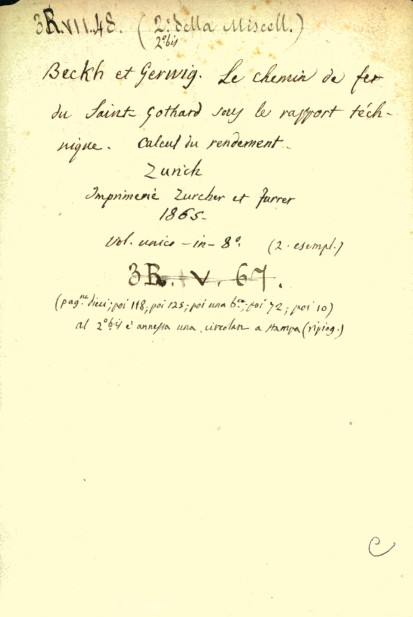 3R.VII.48. (2.° della Miscell.)
2° bis
Beckh et Gerwig. Le chemin de fer
du Saint-Gothard sous le rapport téch-
nique. Calcul du rendement.
Zurick
Imprimerie Zurcher et Furrer
1865.
Vol. unico - in - 8.° (2. esempl.)
3R. V. 67.
(pag.ne dieci; poi 118, poi 125; poi una b.ca; poi 72; poi 10)
al 2° bis è annessa una circolare a stampa (ripieg.)
C